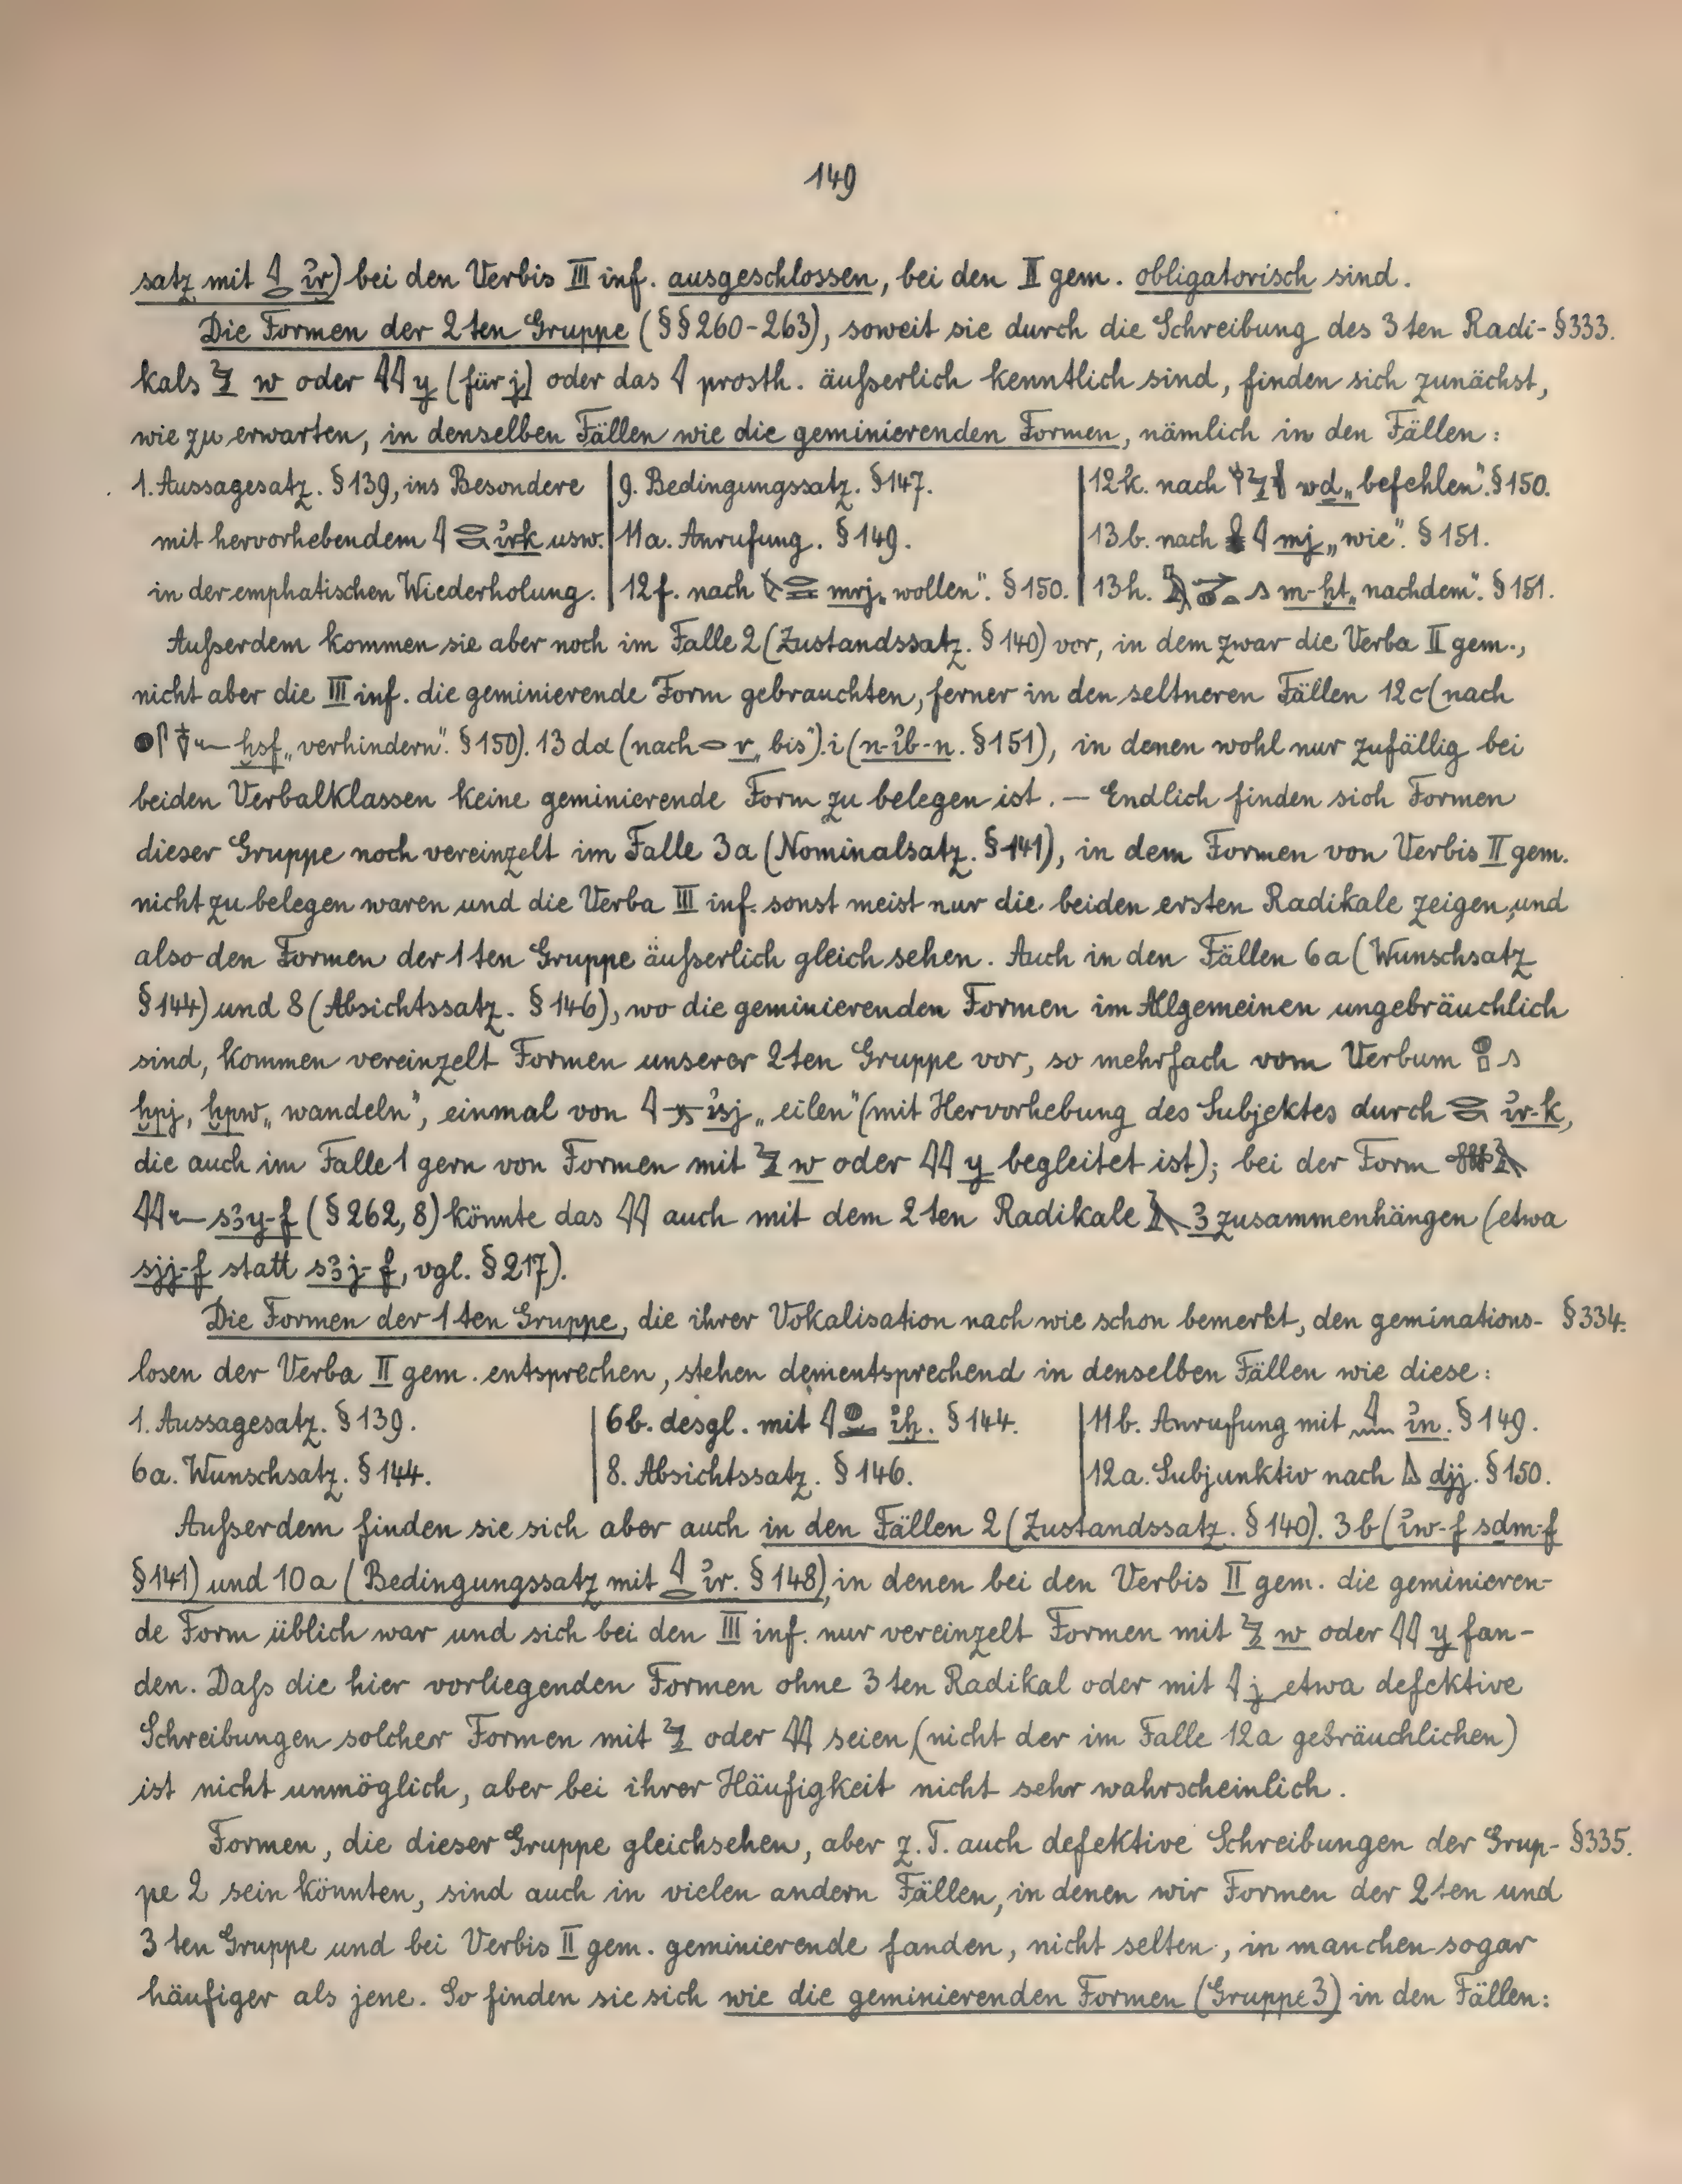 149
satz mit 𓇋𓂋 ı͗r) bei den Verbis III inf. ausgeschlossen, bei den II gem. obligatorisch sind.
Die Formen der 2ten Gruppe (§§ 260-263), soweit sie durch die Schreibung des 3ten Radi- § 333.
kals 𓅱 w oder 𓇋𓇋 y (für j) oder das 𓇋 prosth. äußerlich kenntlich sind, finden sich zunächst,
wie zu erwarten, in denselben Fällen wie die geminierenden Formen, nämlich in den Fällen:
1. Aussagesatz. § 139, ins Besondere
mit hervorhebendem 𓇋𓂋𓎡 ı͗rk usw.
in der emphatischen Wiederholung.
9. Bedingungssatz. § 147.
11a. Anrufung. § 149.
12f. nach mrj „wollen". § 150.
12k. nach wḏ „befehlen". § 150.
13b. nach mj „wie". § 151.
13h. m-ḫt „nachdem". § 151.
Außerdem kommen sie aber noch im Falle 2 (Zustandssatz. § 140) vor, in dem zwar die Verba II gem.,
nicht aber die III inf. die geminierende Form gebrauchten, ferner in den seltneren Fällen 12c (nach
ḫsf „verhindern". § 150). 13 dα (nach 𓂋 r „bis"). i (n-ı͗b-n. § 151), in denen wohl nur zufällig bei
beiden Verbalklassen keine geminierende Form zu belegen ist. — Endlich finden sich Formen
dieser Gruppe noch vereinzelt im Falle 3a (Nominalsatz. § 141), in dem Formen von Verbis II gem.
nicht zu belegen waren und die Verba III inf. sonst meist nur die beiden ersten Radikale zeigen, und
also den Formen der 1ten Gruppe äußerlich gleich sehen. Auch in den Fällen 6a (Wunschsatz
§ 144) und 8 (Absichtssatz. § 146), wo die geminierenden Formen im Allgemeinen ungebräuchlich
sind, kommen vereinzelt Formen unserer 2ten Gruppe vor, so mehrfach vom Verbum 𓐍𓊪𓂻
ḫpj, ḫpw „wandeln", einmal von ı͗sj „eilen" (mit Hervorhebung des Subjektes durch 𓂋𓎡 ı͗r-k,
die auch im Falle 1 gern von Formen mit 𓅱 w oder 𓇋𓇋 y begleitet ist); bei der Form
𓇋𓇋𓆑 sꜣy-f (§ 262, 8) könnte das 𓇋𓇋 auch mit dem 2ten Radikale 𓄿 ꜣ zusammenhängen (etwa
sjj-f statt sꜣj-f, vgl. § 217).
Die Formen der 1ten Gruppe, die ihrer Vokalisation nach wie schon bemerkt, den geminations- § 334.
losen der Verba II gem. entsprechen, stehen dementsprechend in denselben Fällen wie diese:
1. Aussagesatz. § 139.
6a. Wunschsatz. § 144.
6b. desgl. mit 𓇋𓐍 ı͗ḫ. § 144.
8. Absichtssatz. § 146.
11b. Anrufung mit 𓇋𓈖 ı͗n. § 149.
12a. Subjunktiv nach 𓏙 djj. § 150.
Außerdem finden sie sich aber auch in den Fällen 2 (Zustandssatz. § 140). 3b (ı͗w-f sḏm-f
§ 141) und 10a (Bedingungssatz mit 𓇋𓂋 ı͗r. § 148), in denen bei den Verbis II gem. die geminieren-
de Form üblich war und sich bei den III inf. nur vereinzelt Formen mit 𓅱 w oder 𓇋𓇋 y fan-
den. Daß die hier vorliegenden Formen ohne 3ten Radikal oder mit 𓇋 j etwa defektive
Schreibungen solcher Formen mit 𓅱 oder 𓇋𓇋 seien (nicht der im Falle 12a gebräuchlichen)
ist nicht unmöglich, aber bei ihrer Häufigkeit nicht sehr wahrscheinlich.
Formen, die dieser Gruppe gleichsehen, aber z. T. auch defektive Schreibungen der Grup- § 335.
pe 2 sein könnten, sind auch in vielen andern Fällen, in denen wir Formen der 2ten und
3ten Gruppe und bei Verbis II gem. geminierende fanden, nicht selten, in manchen sogar
häufiger als jene. So finden sie sich wie die geminierenden Formen (Gruppe 3) in den Fällen: